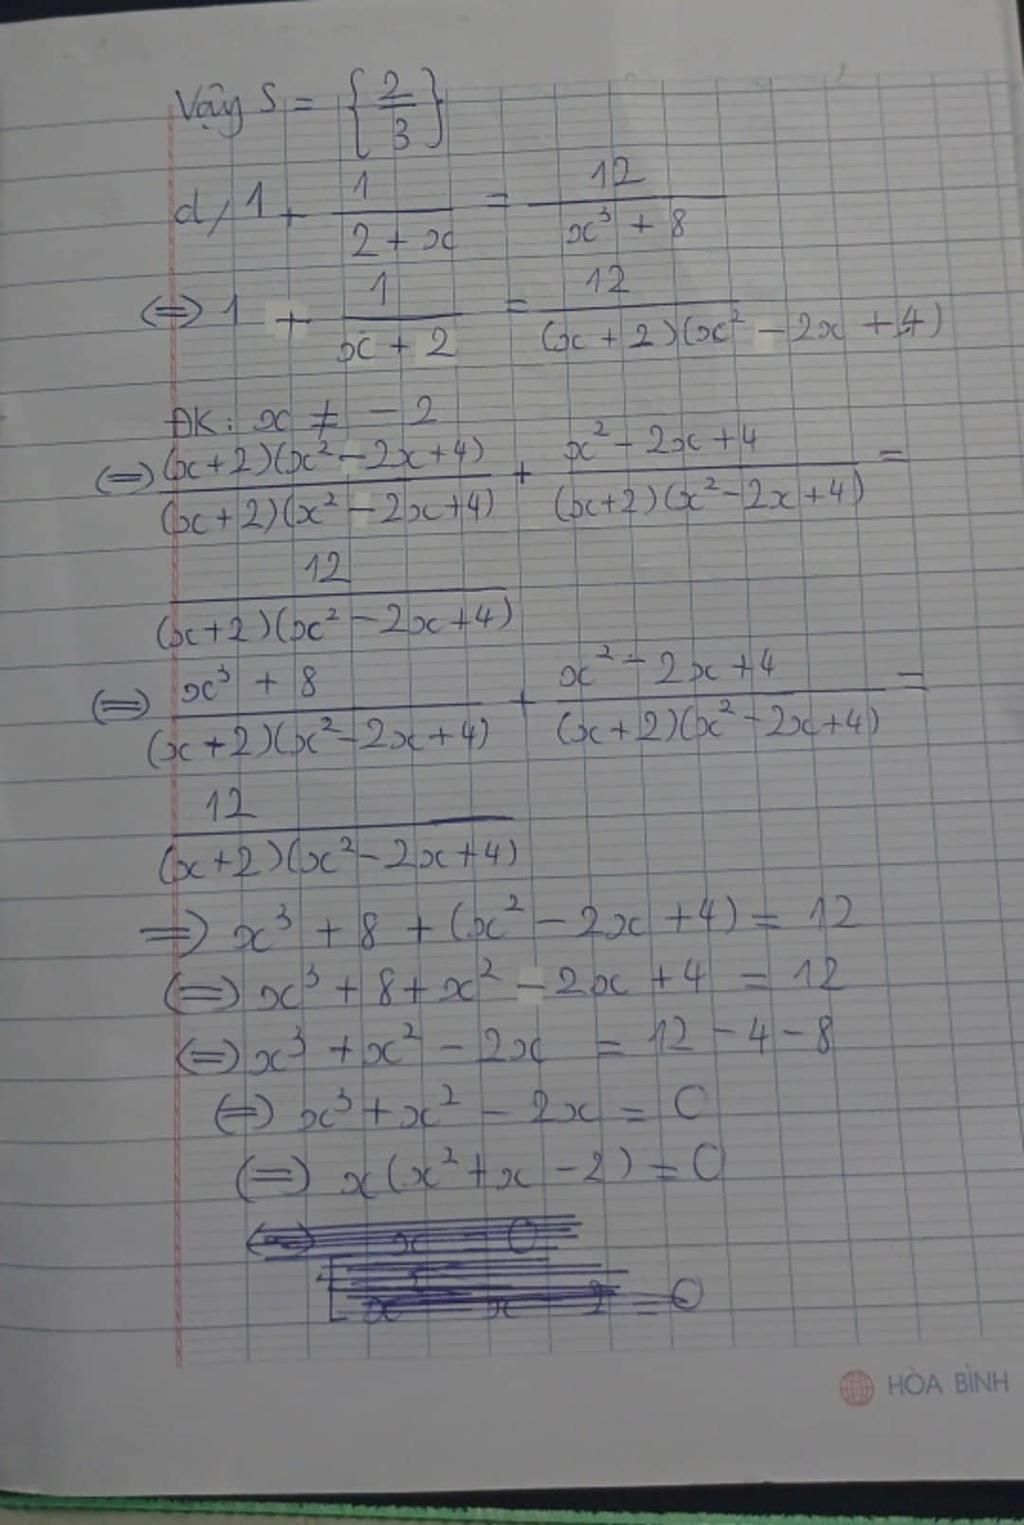 Vậy S = {2/3}
d, 1 + 1/(2 + x) = 12/(x³ + 8)
(=) 1 + 1/(x + 2) = 12/((x + 2)(x² - 2x + 4))
ĐK: x ≠ - 2
(=) (x+2)(x² - 2x+4)/((x+2)(x² - 2x+4)) + (x² - 2x + 4)/((x+2)(x² - 2x + 4)) =
12/((x+2)(x² - 2x+4))
(=) (x³ + 8)/((x+2)(x² - 2x+4)) + (x² - 2x + 4)/((x+2)(x² - 2x+4)) =
12/((x+2)(x² - 2x+4))
=) x³ + 8 + (x² - 2x + 4) = 12
(=) x³ + 8 + x² - 2x + 4 = 12
(=) x³ + x² - 2x = 12 - 4 - 8
(=) x³ + x² - 2x = 0
(=) x(x² + x - 2) = 0
HÒA BÌNH